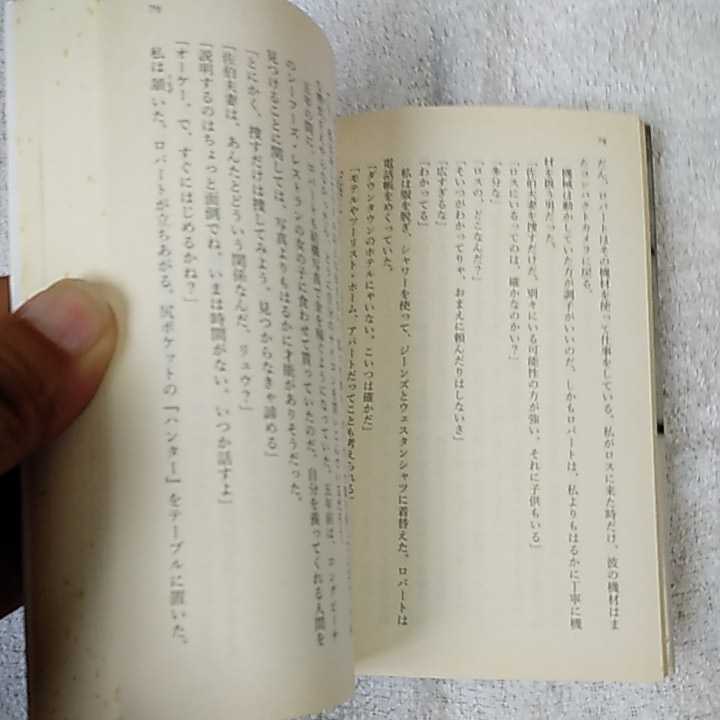 だん、ロバートはその機材を使って仕事をしている。私がロスに来た時だけ、彼の機材はま
たコンパクトカメラに戻る。
機械は動かしていた方が調子がいいのだ。しかもロバートは、私よりもはるかに丁寧に機
材を扱う男だった。
「佐伯夫妻を捜すだけだ。別々にいる可能性の方が強い。それに子供もいる」
「ロスにいるってのは、確かなのかい？」
「多分な」
「ロスの、どこなんだ？」
「そいつがわかってりゃ、おまえに頼んだりはしないさ」
「広すぎるな」
「わかってる」
私は服を脱ぎ、シャワーを使って、ジーンズとウェスタンシャツに着替えた。ロバートは
電話帳をめくっていた。
「ダウンタウンのホテルにゃいない。こいつは確かだ」
「モテルやツーリスト・ホーム、アパートだってことも考えられる」
のシーフーズ・レストランの女の子に食わせて貰っていたのだ。自分を養ってくれる人間を
見つけることに関しては、写真よりもはるかに才能がありそうだった。
「とにかく、捜すだけは捜してみよう。見つからなきゃ諦める」
「佐伯夫妻は、あんたとどういう関係なんだ、リュウ？」
「説明するのはちょっと面倒でね。いまは時間がない。いつか話すよ」
「オーケー。で、すぐにはじめるかね？」
私は頷いた。ロバートが立ちあがる。尻ポケットの『ハンター』をテーブルに置いた。